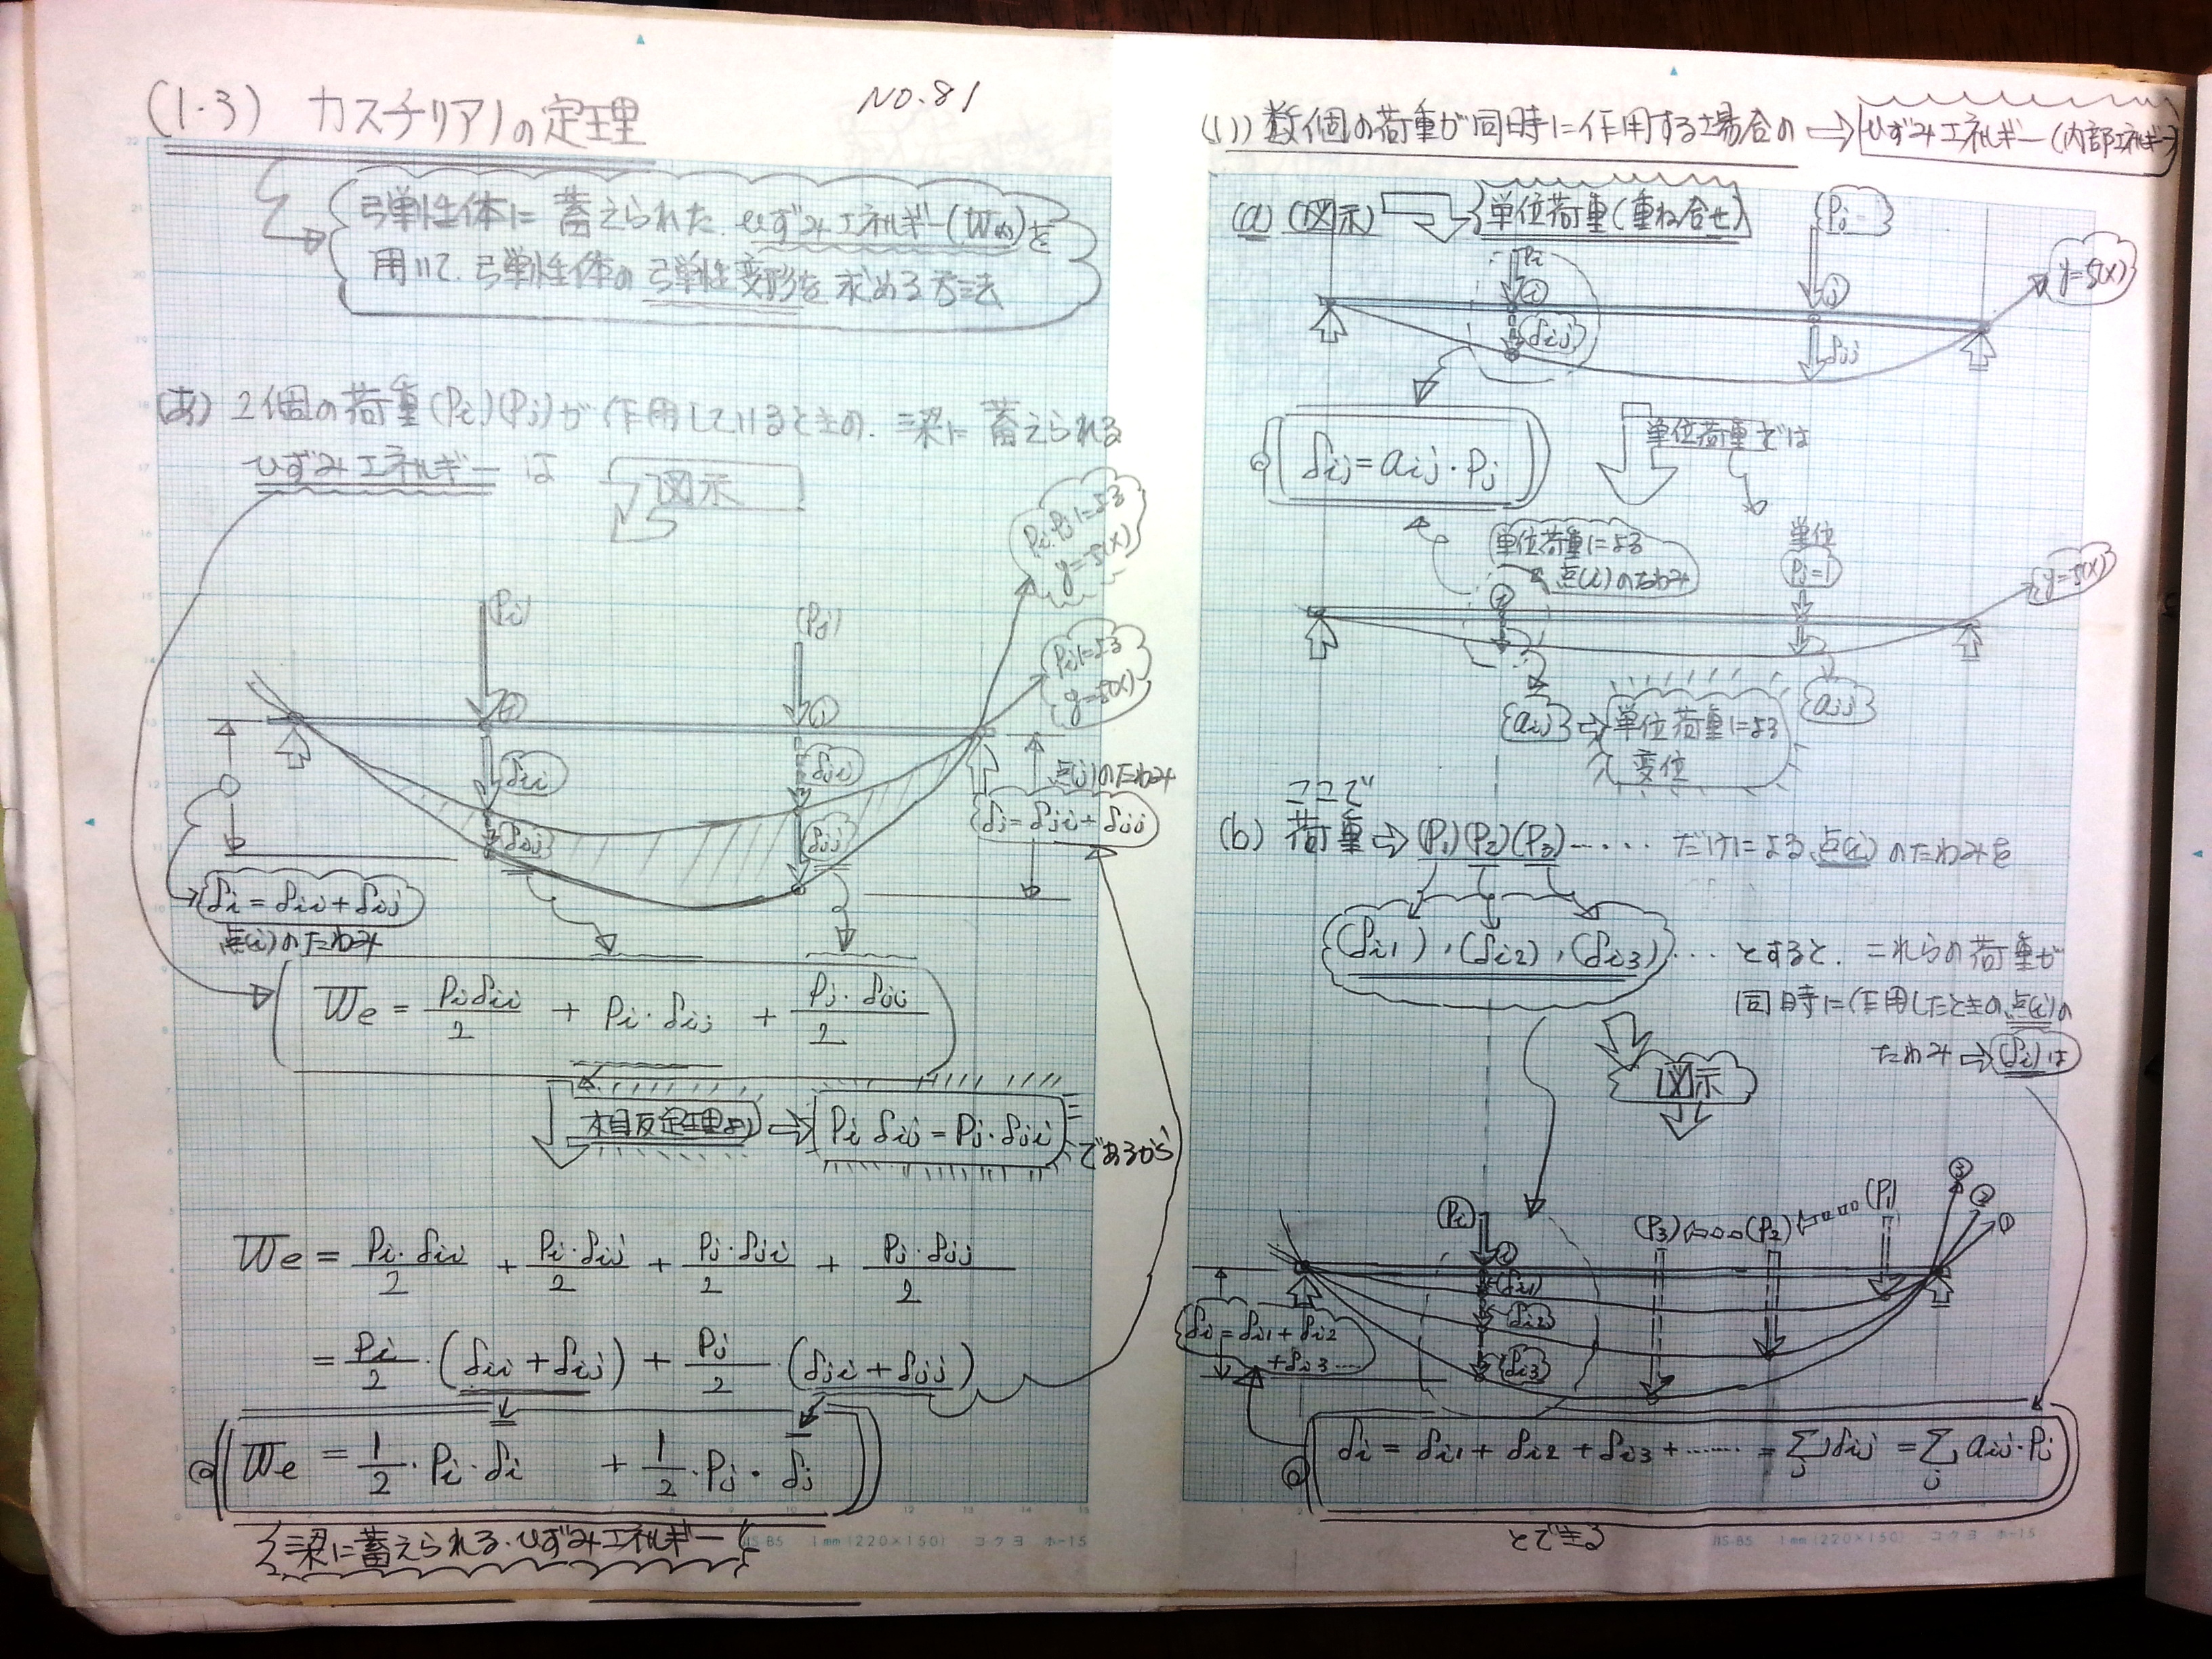 (1・3) カスチリアノの定理
NO.81
弾性体に 蓄えられた ひずみエネルギー(W内)を
用いて、弾性体の弾性変形を求める方法
(あ) 2個の荷重(Pi)(Pj)が作用しているときの、梁に 蓄えられる
ひずみエネルギー は
図示
Pi・Pjによる
y=δ(x)
(Pi)
(Pj)
Piによる
y=δ(x)
ⓘ
ⓙ
δii
δji
点(j)のたわみ
δj=δji+δjj
δij
δjj
δi=δii+δij
点(i)のたわみ
We = Piδii/2 + Pi・δij + Pj・δjj/2
相反定理より ⇨ Pi δij = Pj・δji であるから
We = Pi・δii/2 + Pi・δij/2 + Pj・δji/2 + Pj・δjj/2
= Pi/2・(δii+δij) + Pj/2・(δji+δjj)
We = 1/2・Pi・δi + 1/2・Pj・δj
梁に蓄えられる、ひずみエネルギー
JIS-B5 1mm(220×150) コクヨ ホ-15
(1)) 数個の荷重が同時に作用する場合の ⇨ ひずみエネルギー(内部エネルギー)
(a) (図示) 単位荷重(重ね合せ)
Pj
y=δ(x)
Pi
ⓘ
ⓙ
δij
δjj
δij=aij・Pj
単位荷重では
単位荷重による
点(i)のたわみ
単位
Pj=1
y=δ(x)
ⓘ
aij ⇨ 単位荷重による
変位
ajj
ココで
(b) 荷重⇨(P1)(P2)(P3)・・・・・ だけによる点(i)のたわみを
(δi1),(δi2),(δi3)・・・とすると、これらの荷重が
同時に作用したときの点(i)の
たわみ⇨(δi)は
図示
③
②
①
(Pi)
(P3)⇦ooo(P2)⇦oooo(P1)
ⓘ
(δi1)
(δi2)
(δi3)
δi=δi1+δi2
+δi3・・・
δi = δi1 + δi2 + δi3 +・・・・・・ = Σj δij = Σj aij・Pj
とできる
JIS-B5 1mm(220×150) コクヨ ホ-15